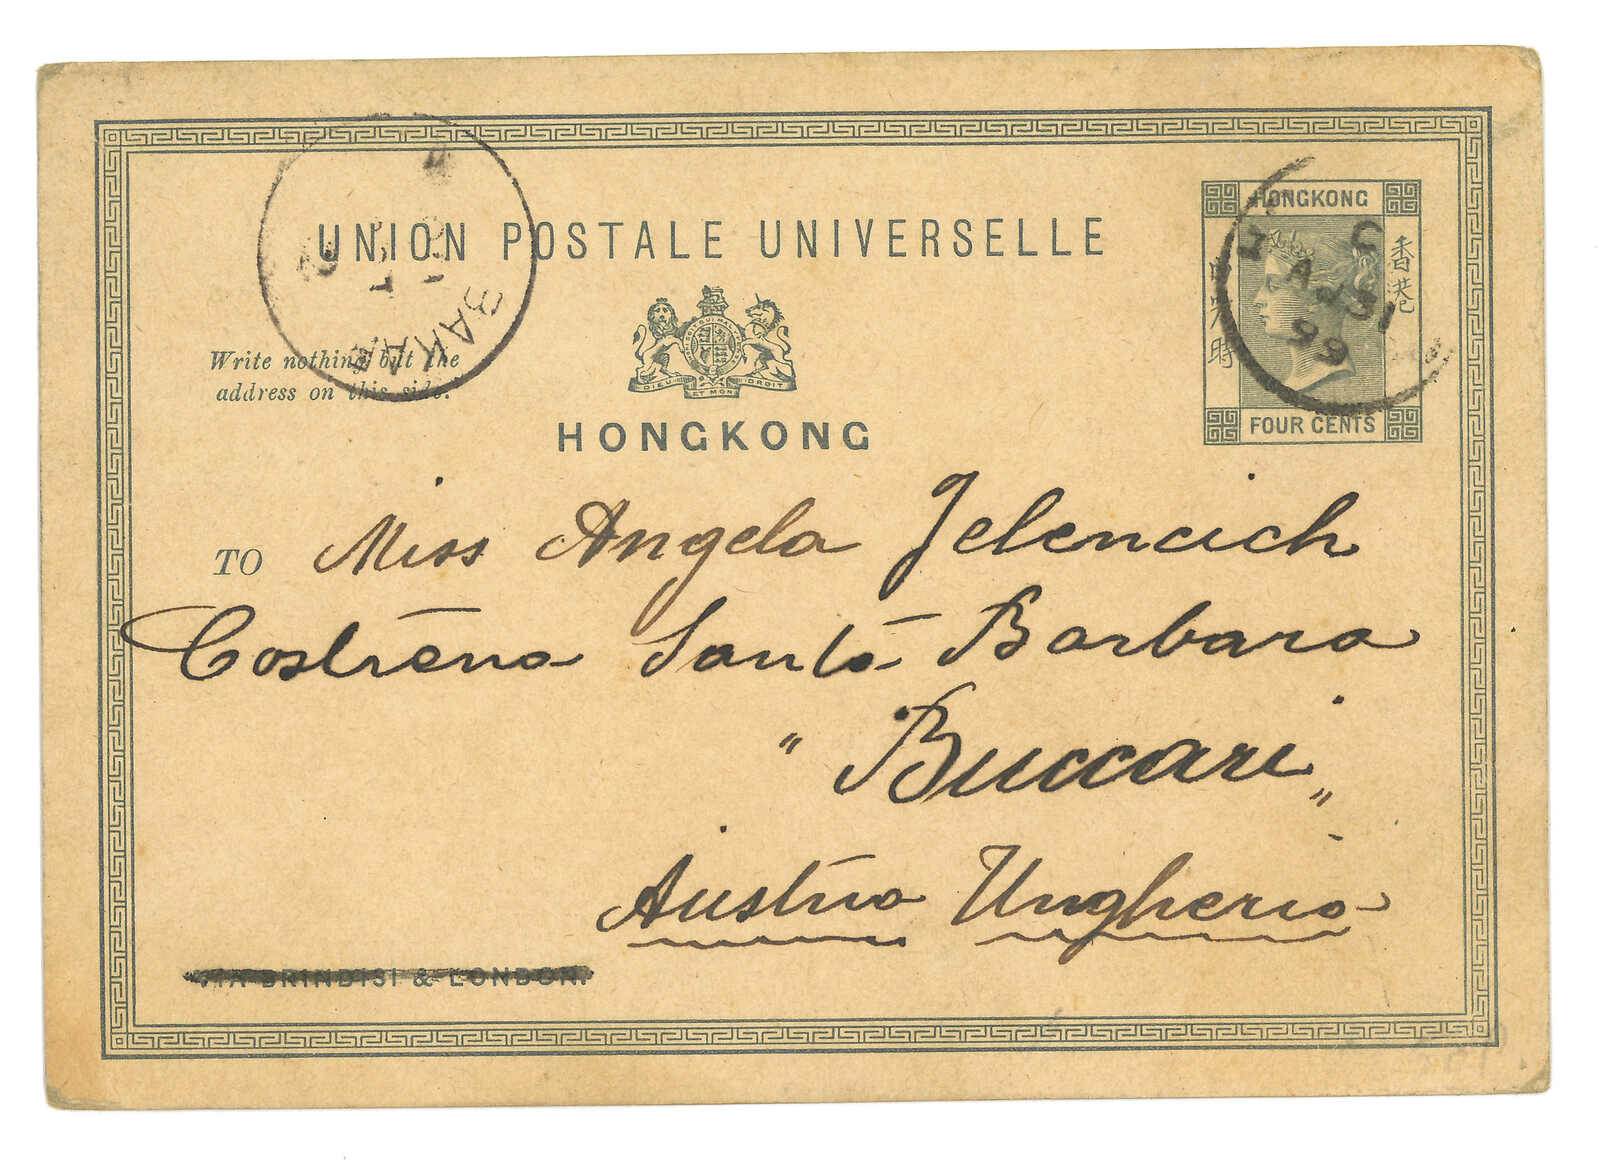 UNION POSTALE UNIVERSELLE
HONGKONG
香港
FOUR CENTS
C
A
JY 31
99
BAKAR
Write nothing but the
address on this side.
DIEU ET MON DROIT
HONGKONG
TO Miss Angela Jelencich
Costrena Santa Barbara
"Buccari"
Austria Ungheria
VIA BRINDISI & LONDON.